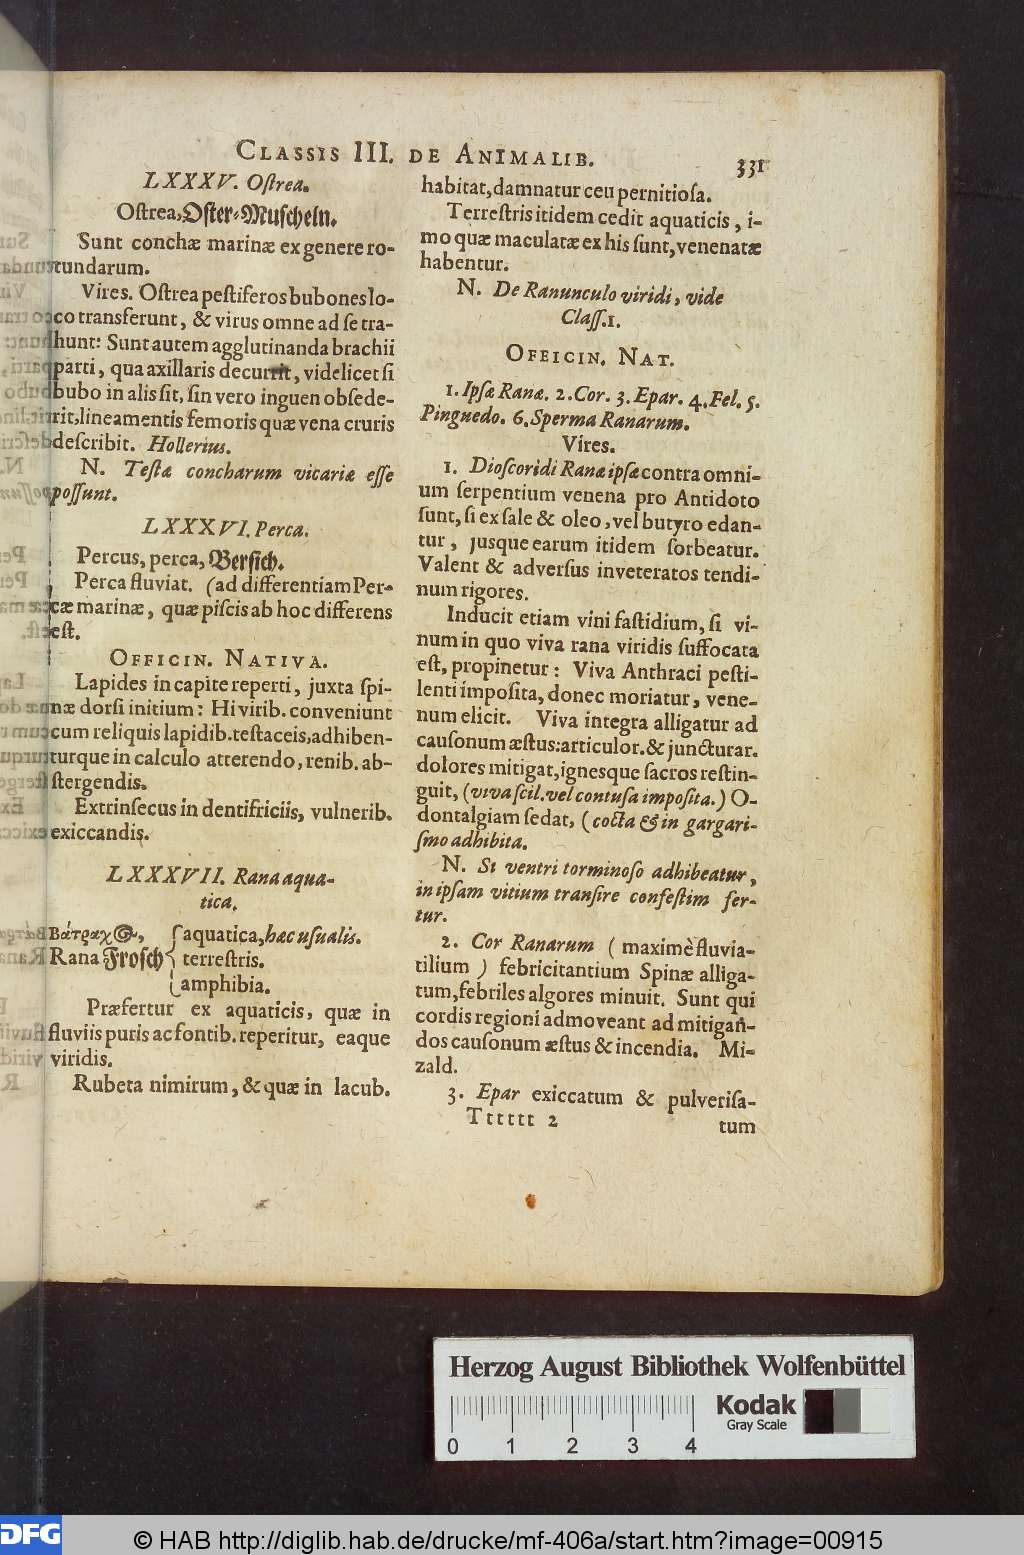 CLASSIS III. DE ANIMALIB. 331
LXXXV. Oſtrea.
Oſtrea, Oſter-Muſcheln.
Sunt conchæ marinæ ex genere ro-
tundarum.
Vires. Oſtrea peſtiferos bubones lo-
co transferunt, & virus omne ad ſe tra-
hunt: Sunt autem agglutinanda brachii
parti, qua axillaris decurrit, videlicet ſi
bubo in alis ſit, ſin vero inguen obſede-
rit, lineamentis femoris quæ vena cruris
deſcribit. Hollerius.
N. Teſtæ concharum vicariæ eſſe
poſſunt.
LXXXVI. Perca.
Percus, perca, Berſich.
Perca fluviat. (ad differentiam Per-
cæ marinæ, quæ piſcis ab hoc differens
eſt.
OFFICIN. NATIVA.
Lapides in capite reperti, juxta ſpi-
næ dorſi initium: Hi virib. conveniunt
cum reliquis lapidib. teſtaceis, adhiben-
turque in calculo atterendo, renib. ab-
ſtergendis.
Extrinſecus in dentifriciis, vulnerib.
exiccandis.
LXXXVII. Rana aqua-
tica.
Βάτραχος, { aquatica, hæc uſualis.
Rana Froſch { terreſtris.
amphibia.
Præfertur ex aquaticis, quæ in
fluviis puris ac fontib. reperitur, eaque
viridis.
Rubeta nimirum, & quæ in lacub.
habitat, damnatur ceu pernitioſa.
Terreſtris itidem cedit aquaticis, i-
mo quæ maculatæ ex his ſunt, venenatæ
habentur.
N. De Ranunculo viridi, vide
Claſſ. 1.
OFFICIN. NAT.
1. Ipſæ Ranæ. 2. Cor. 3. Epar. 4. Fel. 5.
Pinguedo. 6. Sperma Ranarum.
Vires.
1. Dioſcoridi Ranæ ipſæ contra omni-
um ſerpentium venena pro Antidoto
ſunt, ſi ex ſale & oleo, vel butyro edan-
tur, jusque earum itidem ſorbeatur.
Valent & adverſus inveteratos tendi-
num rigores.
Inducit etiam vini faſtidium, ſi vi-
num in quo viva rana viridis ſuffocata
eſt, propinetur: Viva Anthraci peſti-
lenti impoſita, donec moriatur, vene-
num elicit. Viva integra alligatur ad
cauſonum æſtus: articulor. & juncturar.
dolores mitigat, ignesque ſacros reſtin-
guit, (viva ſcil. vel contuſa impoſita.) O-
dontalgiam ſedat, (cocta & in gargari-
ſmo adhibita.
N. Si ventri torminoſo adhibeatur,
in ipſam vitium tranſire confeſtim fer-
tur.
2. Cor Ranarum (maximè fluvia-
tilium) febricitantium Spinæ alliga-
tum, febriles algores minuit. Sunt qui
cordis regioni admoveant ad mitigan-
dos cauſonum æſtus & incendia. Mi-
zald.
3. Epar exiccatum & pulveriſa-
Tttttt 2 tum
Herzog August Bibliothek Wolfenbüttel
0 1 2 3 4
Kodak
Gray Scale
DFG © HAB http://diglib.hab.de/drucke/mf-406a/start.htm?image=00915